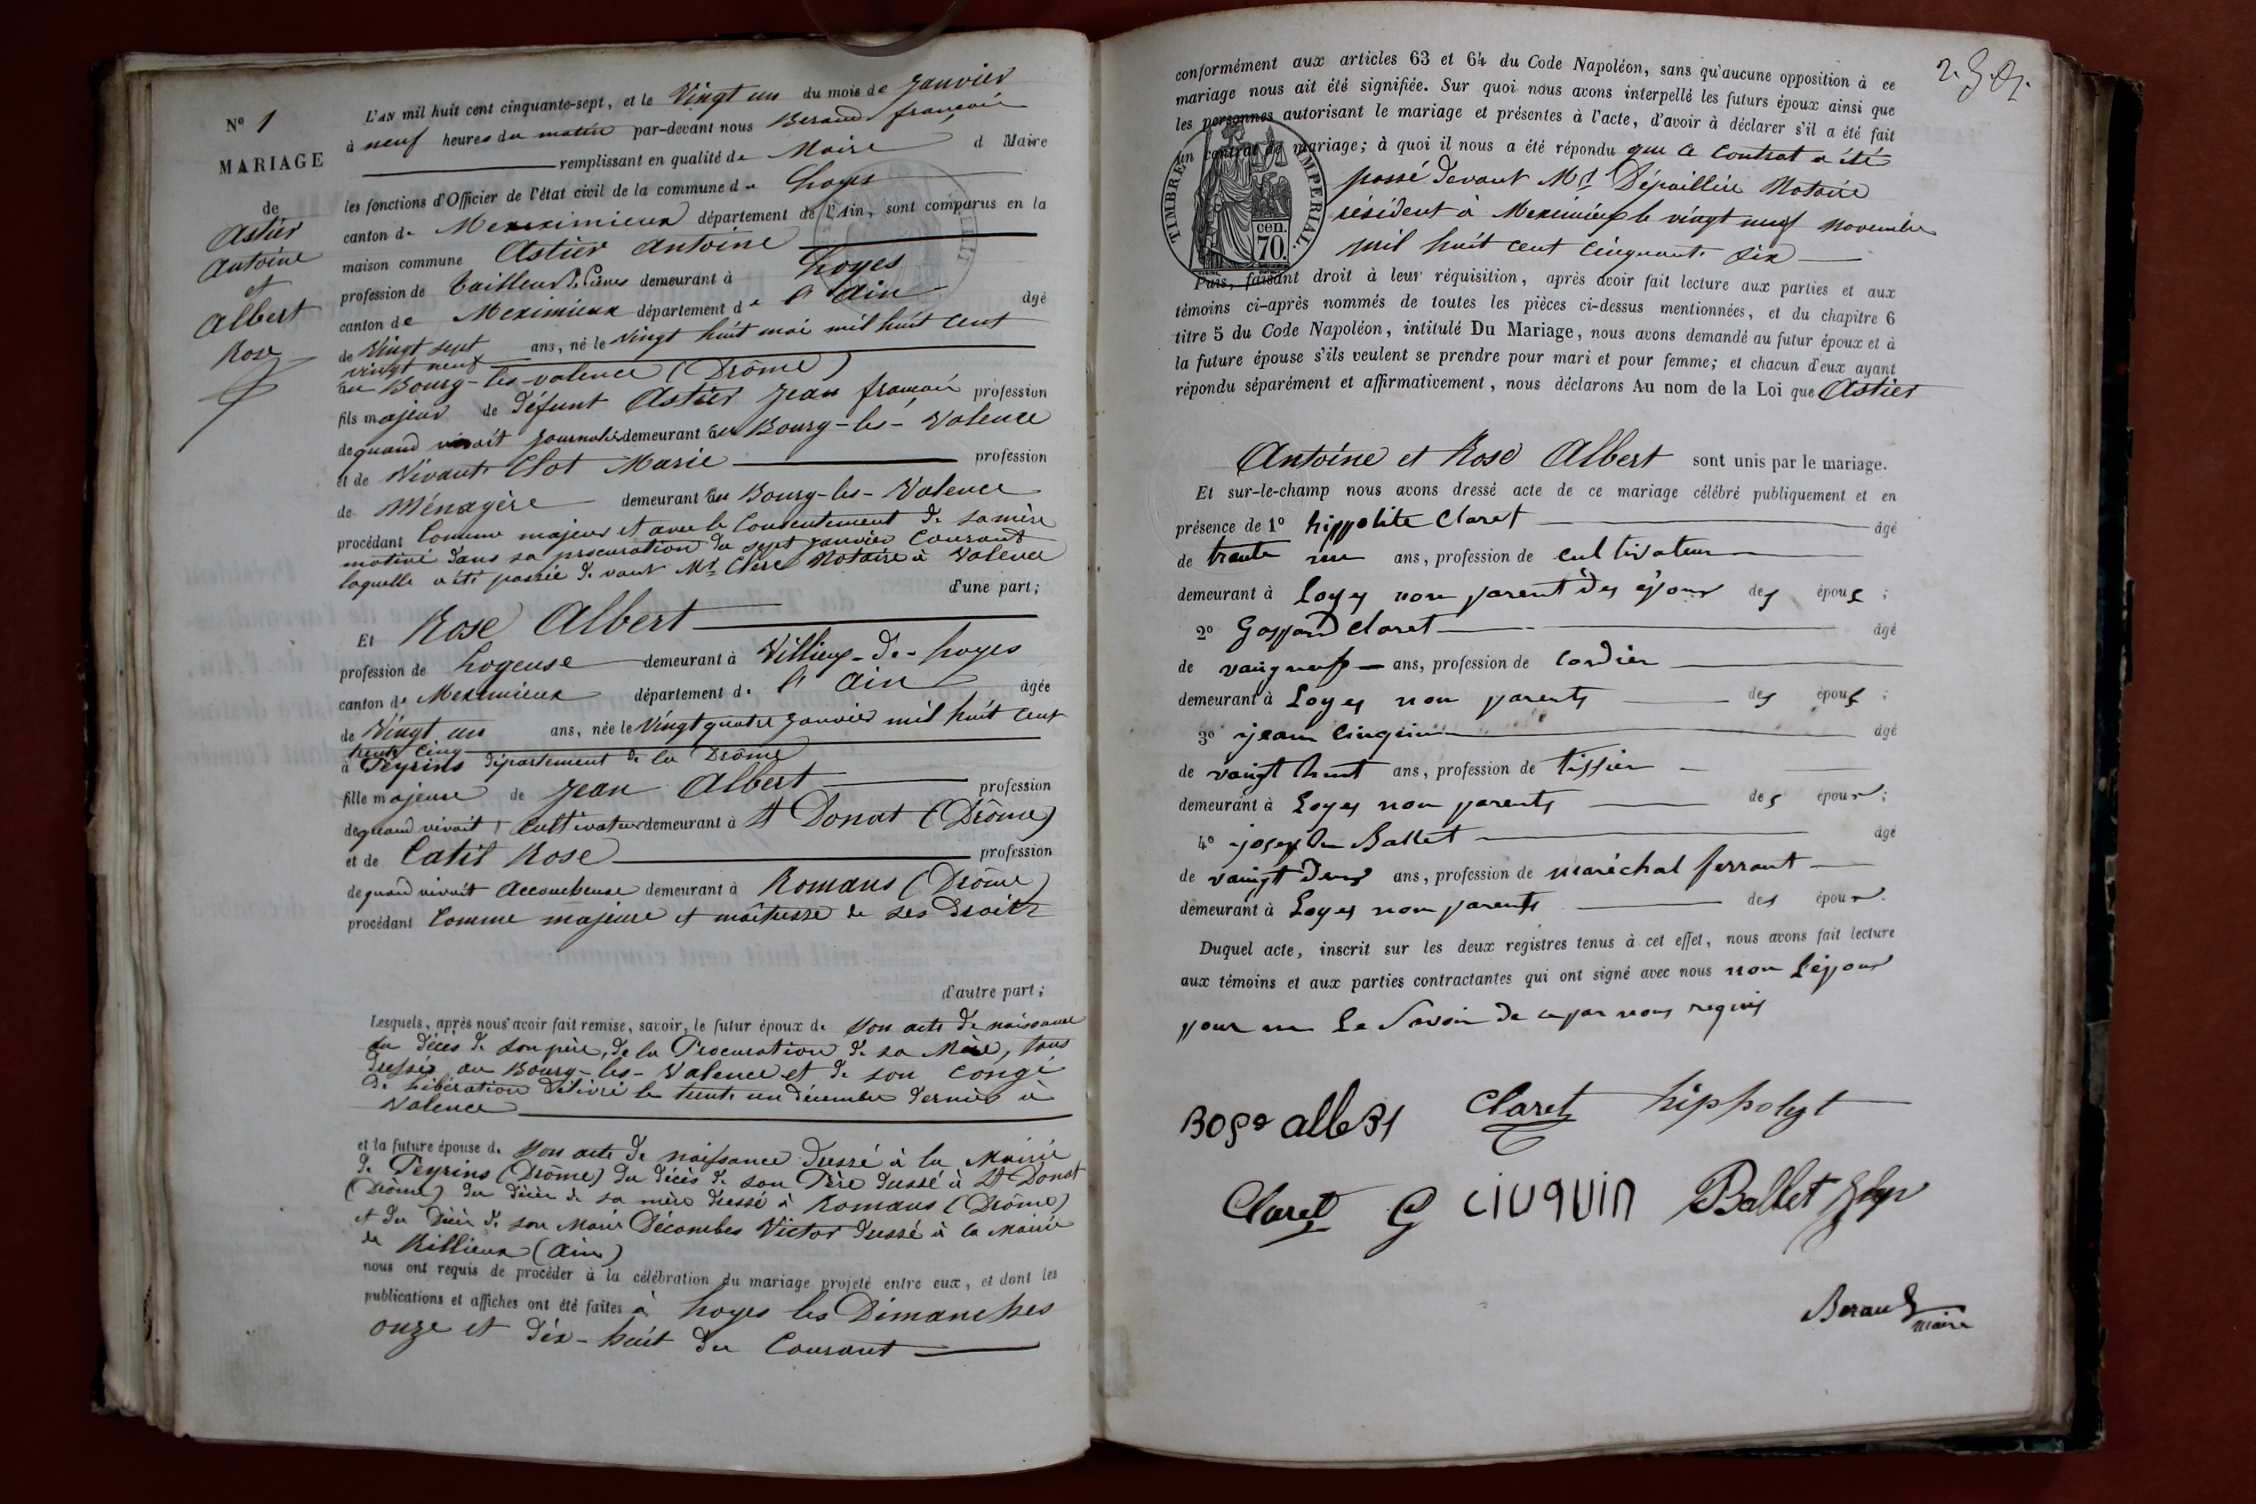 N° 1
MARIAGE
de
Astier
Antoine
et
Albert
Rose
L'AN mil huit cent cinquante-sept, et le Vingt un du mois de Janvier
à neuf heures du matin par-devant nous Beraud françois
remplissant en qualité de Maire d Maire
les fonctions d'Officier de l'état civil de la commune de Loyes
canton de Meximieux département de l'Ain, sont comparus en la
maison commune Astier Antoine
profession de tailleur de Pierres demeurant à Loyes
canton de Meximieux département de l'Ain âgé
de Vingt sept ans, né le vingt huit mai mil huit cent
vingt neuf
au Bourg-les-valence (Drôme)
fils majeur de défunt Astier Jean françois profession
de quand vivait Journalier demeurant au Bourg-lès-Valence
et de Vivante Clot Marie profession
de Ménagère demeurant au Bourg-les-Valence
procédant Comme majeur et avec le Consentement de sa mère
motivé dans sa procuration du sept janvier Courant
laquelle a été passée devant Me Notaire à Valence
d'une part;
Et Rose Albert
profession de Logeuse demeurant à Villieux-de-Loyes
canton de Meximieux département de l'Ain âgée
de Vingt un ans, née le Vingt quatre Janvier mil huit cent
trente cinq
à Peyrins département de la Drôme
fille majeure de Jean Albert profession
de quand vivait cultivateur demeurant à St Donat (Drôme)
et de Catil Rose profession
de quand vivait Accoucheuse demeurant à Romans (Drôme)
procédant Comme majeure et maîtresse de ses droits
d'autre part;
Lesquels, après nous avoir fait remise, savoir, le futur époux de Son acte de naissance
du décès de son père, de la Procuration de sa Mère, tous
dressés au Bourg-les-Valence et de son Congé
de libération délivré le trente un décembre dernier à
Valence
et la future épouse de Son acte de naissance dressé à la Mairie
de Peyrins (Drôme) du décès de son Père dressé à St Donat
(Drôme) du décès de sa mère dressé à Romans (Drôme)
et du Décès de son Mari Décombes Victor dressé à la Mairie
de Rillieux (Ain)
nous ont requis de procéder à la célébration du mariage projeté entre eux, et dont les
publications et affiches ont été faites à Loyes les Dimanches
onze et dix-huit du Courant
conformément aux articles 63 et 64 du Code Napoléon, sans qu'aucune opposition à ce
mariage nous ait été signifiée. Sur quoi nous avons interpellé les futurs époux ainsi que
les personnes autorisant le mariage et présentes à l'acte, d'avoir à déclarer s'il a été fait
un contrat de mariage; à quoi il nous a été répondu que ce Contrat a été
passé devant Me Dépaillière Notaire
résident à Meximieux le vingt neuf novembre
mil huit cent cinquante six
TIMBRE IMPERIAL.
cen.
70.
Puis, faisant droit à leur réquisition, après avoir fait lecture aux parties et aux
témoins ci-après nommés de toutes les pièces ci-dessus mentionnées, et du chapitre 6
titre 5 du Code Napoléon, intitulé Du Mariage, nous avons demandé au futur époux et à
la future épouse s'ils veulent se prendre pour mari et pour femme; et chacun d'eux ayant
répondu séparément et affirmativement, nous déclarons Au nom de la Loi que Astier
Antoine et Rose Albert sont unis par le mariage.
Et sur-le-champ nous avons dressé acte de ce mariage célébré publiquement et en
présence de 1° hippolite Claret âgé
de trente un ans, profession de cultivateur
demeurant à Loyes non parent des époux des époux;
2° Gaspard Claret âgé
de vaigneuf ans, profession de Cordier
demeurant à Loyes non parents des époux;
3° jean Cinquin âgé
de vaigt huit ans, profession de tissier
demeurant à Loyes non parents des époux;
4° joseph Ballet âgé
de vaingt deux ans, profession de maréchal ferrant
demeurant à Loyes non parents des époux.
Duquel acte, inscrit sur les deux registres tenus à cet effet, nous avons fait lecture
aux témoins et aux parties contractantes qui ont signé avec nous non l'époux
pour ne le Savoir de ce par nous requis
Rose albert Claret hippolyt
Claret G CIUQUIN Ballet
Beraud
maire